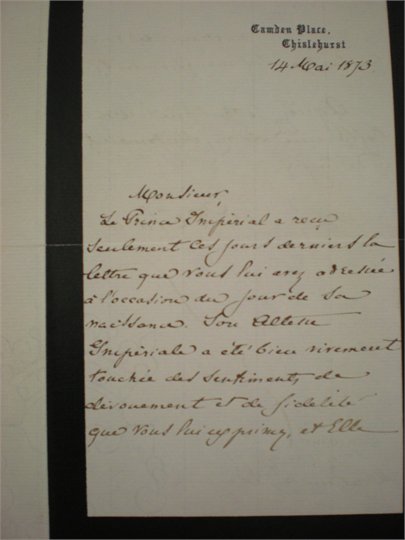 Camden Place,
Chislehurst
14 Mai 1873
Monsieur,
Le Prince Impérial a reçu
seulement ces jours derniers la
lettre que vous lui avez adressée
à l'occasion du jour de sa
naissance. Son Altesse
Impériale a été bien vivement
touchée des sentiments de
dévouement et de fidélité
que vous lui exprimez, et Elle